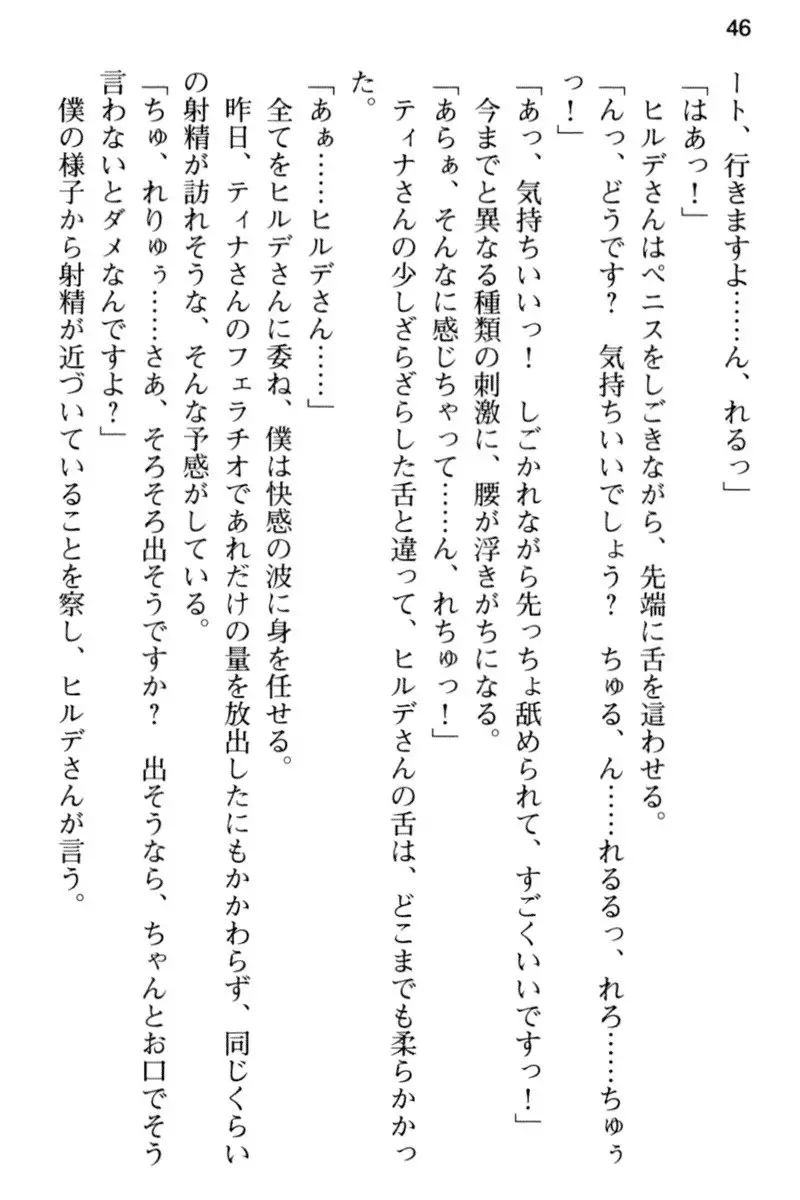 46
ート、行きますよ……ん、れるっ」
「はあっ！」
ヒルデさんはペニスをしごきながら、先端に舌を這わせる。
「んっ、どうです？　気持ちいいでしょう？　ちゅる、ん……れるるっ、れろ……ちゅぅ
っ！」
「あっ、気持ちいいっ！　しごかれながら先っちょ舐められて、すごくいいですっ！」
今までと異なる種類の刺激に、腰が浮きがちになる。
「あらぁ、そんなに感じちゃって……ん、れちゅっ！」
ティナさんの少しざらざらした舌と違って、ヒルデさんの舌は、どこまでも柔らかかっ
た。
「あぁ……ヒルデさん……」
全てをヒルデさんに委ね、僕は快感の波に身を任せる。
昨日、ティナさんのフェラチオであれだけの量を放出したにもかかわらず、同じくらい
の射精が訪れそうな、そんな予感がしている。
「ちゅ、れりゅぅ……さあ、そろそろ出そうですか？　出そうなら、ちゃんとお口でそう
言わないとダメなんですよ？」
僕の様子から射精が近づいていることを察し、ヒルデさんが言う。